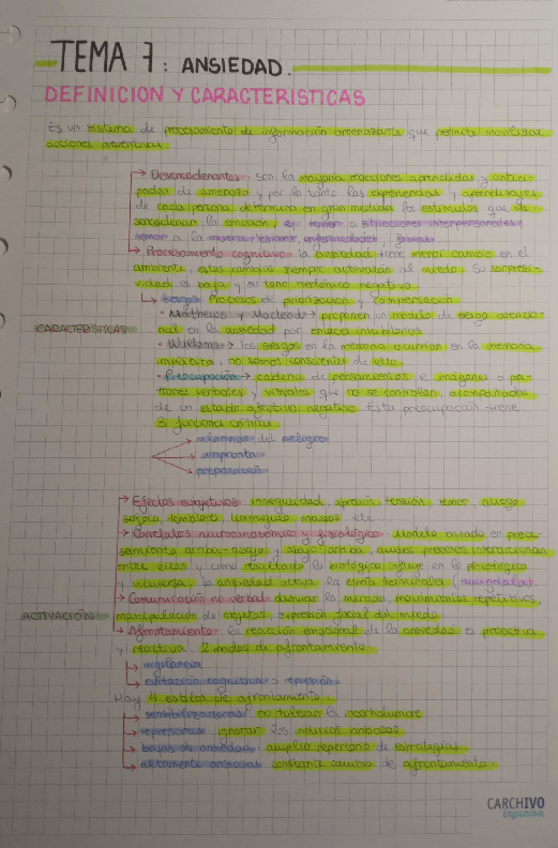 TEMA 7: ANSIEDAD.
DEFINICION Y CARACTERISTICAS
Es un sistema de procesamiento de información amenazante que permite movilizar
acciones preventivas.
Desencadenantes: son la mayoría reacciones aprendidas y antici-
padas de amenaza y por lo tanto las experiencias y aprendizajes
de cada persona determina en gran medida los estímulos que de-
sencadenan la emoción, el temor a situaciones interpersonales,
temor a la muerte, enfermedades, fobias.
Procesamiento cognitivo: la ansiedad tiene menor cambio en el
ambiente, estos cambios siempre activarían al miedo. Su sorpresi-
vidad es baja y su tono hedónico negativo.
Sesgos: Procesos de priorización y compensación
· Mathews y Macleod → proponen un modelo de sesgo atencio-
nal en la ansiedad por
· Williams: los sesgos en la memoria ocurren en la memoria
implícita, no somos conscientes de ello.
CARACTERISTICAS
· Preocupación → cadena de pensamientos e imágenes o pa-
trones verbales y visuales que no se controlan, acompañados
de un estado afectivo negativo. Esta preocupación tiene
3 funciones
alarma del peligro
impronta
preparación
Efectos subjetivos: inseguridad, aprensión, tensión, temor, ahogo,
sofoco, temblores, hormigueo manos etc...
Correlatos neuroanatómicos y fisiológicos. Modelo basado en proce-
samiento arriba-abajo y abajo-arriba, ambos procesos interaccionan
entre ellos y como resultado lo biológico influye en lo psicológico
y viceversa. la ansiedad activa la estría terminales (amígdala).
Comunicación no verbal: desviar la mirada, movimientos repetitivos,
manipulación de objetos, expresión facial del miedo
ACTIVACIÓN
Afrontamiento: la reacción emocional de la ansiedad es proactiva
y reactiva. 2 modos de afrontamiento
vigilancia
evitación cognitiva o represión
Hay 4 estilos de afrontamiento...
sensibilizadores: no toleran la incertidumbre
represores: ignoran los indicios ansiosos
bajos de ansiedad: amplio repertorio de estrategias
altamente ansiosos: constante cambio de afrontamiento.
CARCHIVO
Ingenium